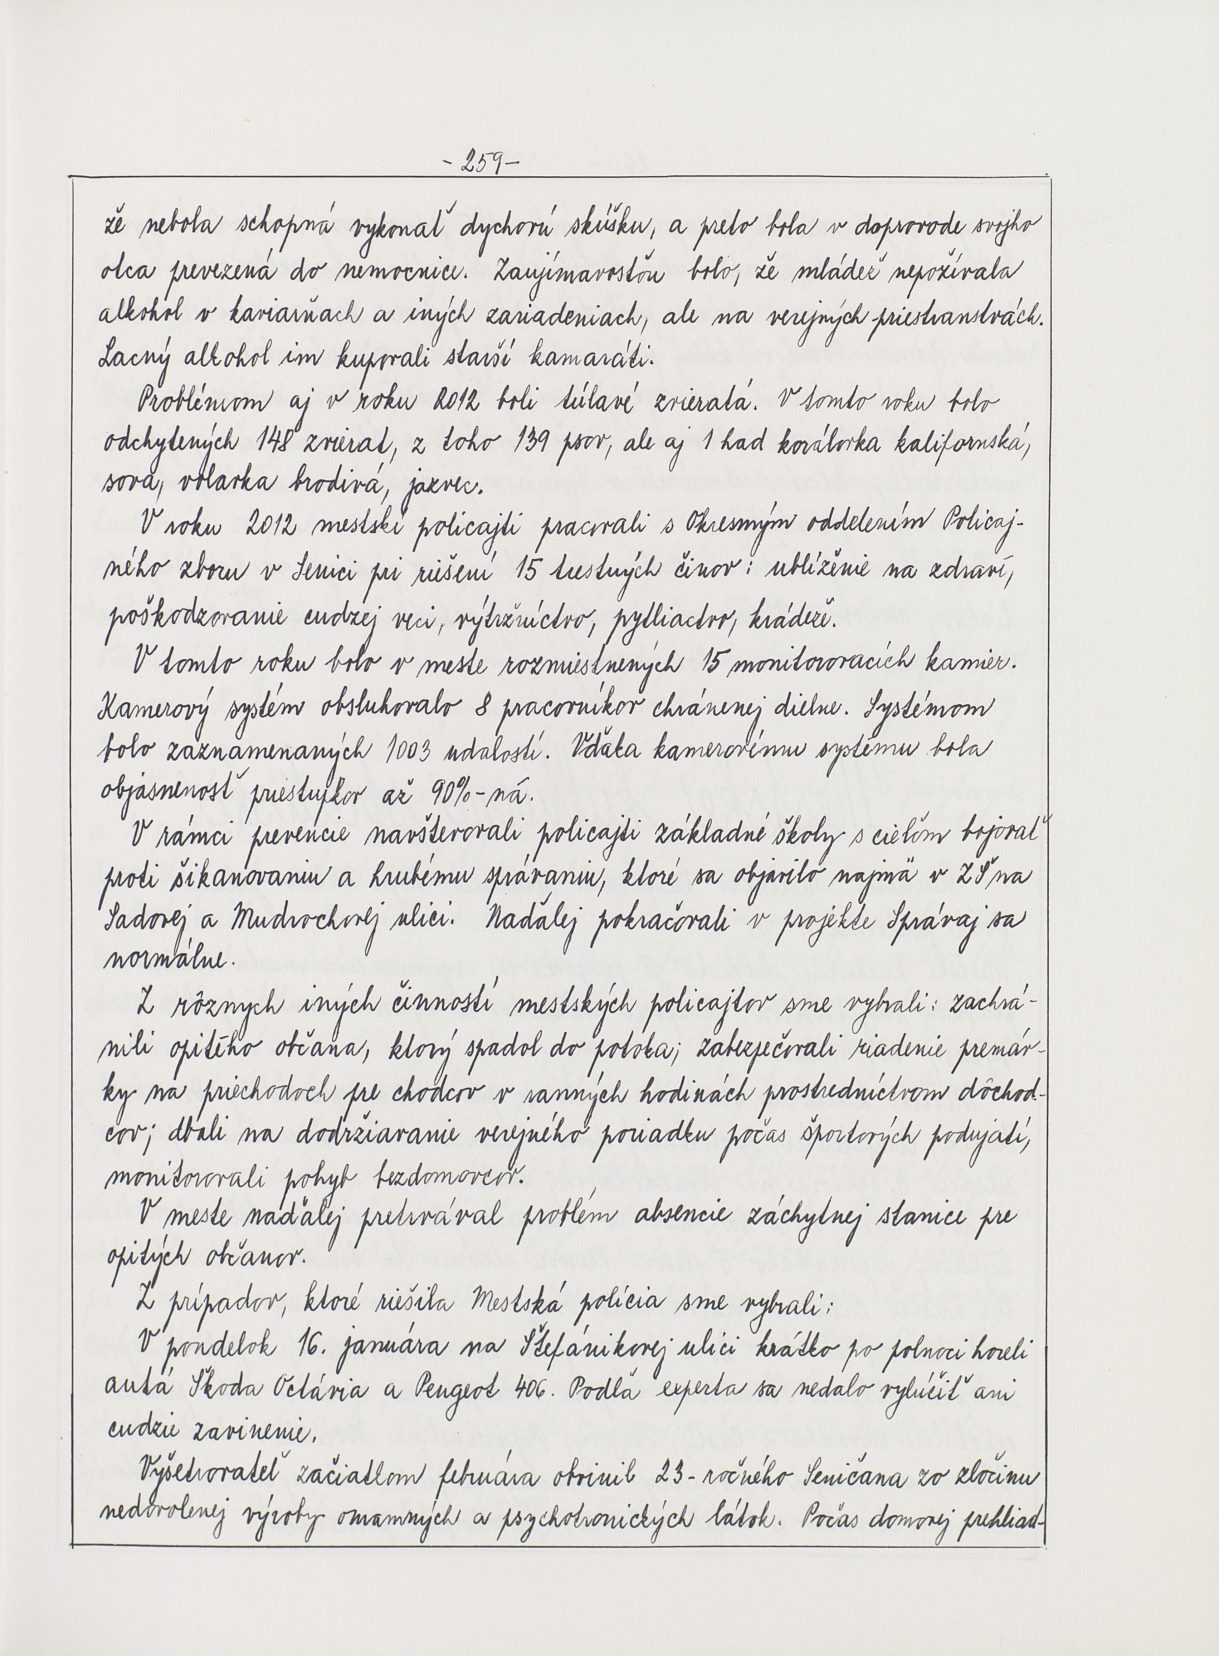 - 259 -
že nebola schopná vykonať dychovú skúšku, a preto bola v doprovode svojho
otca prevezená do nemocnice. Zaujímavosťou bolo, že mládež nepožívala
alkohol v kaviarňach a iných zariadeniach, ale na verejných priestranstvách.
Lacný alkohol im kupovali starší kamaráti.
Problémom aj v roku 2012 boli túlavé zvieratá. V tomto roku bolo
odchytených 148 zvierat, z toho 139 psov, ale aj 1 had korálovka kalifornská,
sova, volavka brodivá, jazvec.
V roku 2012 mestskí policajti pracovali s Okresným oddelením Policaj-
ného zboru v Senici pri riešení 15 trestných činov: ublíženie na zdraví,
poškodzovanie cudzej veci, výtržníctvo, pytliactvo, krádeže.
V tomto roku bolo v meste rozmiestnených 15 monitorovacích kamier.
Kamerový systém obsluhovalo 8 pracovníkov chránenej dielne. Systémom
bolo zaznamenaných 1003 udalostí. Vďaka kamerovému systému bola
objasnenosť priestupkov až 90%-ná.
V rámci prevencie navštevovali policajti základné školy s cieľom bojovať
proti šikanovaniu a hrubému správaniu, ktoré sa objavilo najmä v ZŠ na
Sadovej a Mudrochovej ulici. Naďalej pokračovali v projekte Správaj sa
normálne.
Z rôznych iných činností mestských policajtov sme vybrali: zachrá-
nili opitého občana, ktorý spadol do potoka; zabezpečovali riadenie premáv-
ky na priechodoch pre chodcov v ranných hodinách prostredníctvom dôchod-
cov; dbali na dodržiavanie verejného poriadku počas športových podujatí,
monitorovali pohyb bezdomovcov.
V meste naďalej pretrvával problém absencie záchytnej stanice pre
opitých občanov.
Z prípadov, ktoré riešila Mestská polícia sme vybrali:
V pondelok 16. januára na Štefánikovej ulici krátko po polnoci horeli
autá Škoda Octávia a Peugeot 406. Podľa experta sa nedalo vylúčiť ani
cudzie zavinenie.
Vyšetrovateľ začiatkom februára obvinil 23-ročného Seničana zo zločinu
nedovolenej výroby omamných a psychotronických látok. Počas domovej prehliad-